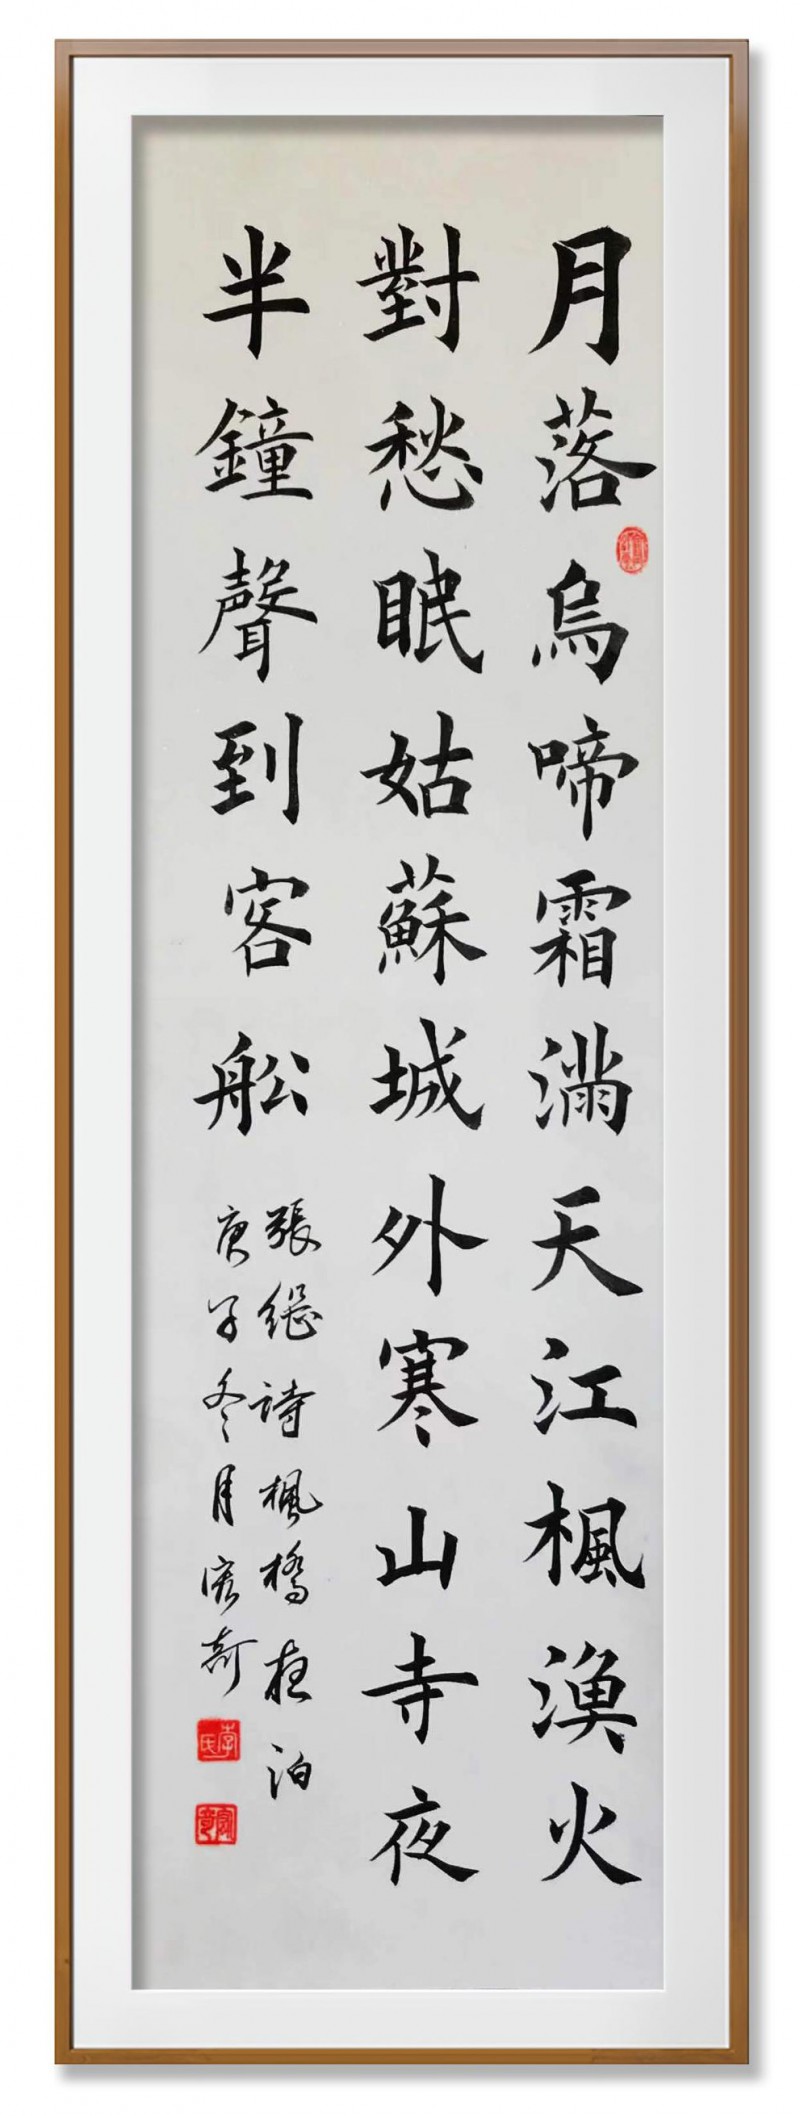 月落烏啼霜滿天江楓漁火
對愁眠姑蘇城外寒山寺夜
半鐘聲到客船
張繼詩楓橋夜泊
庚子冬月宏奇
李氏